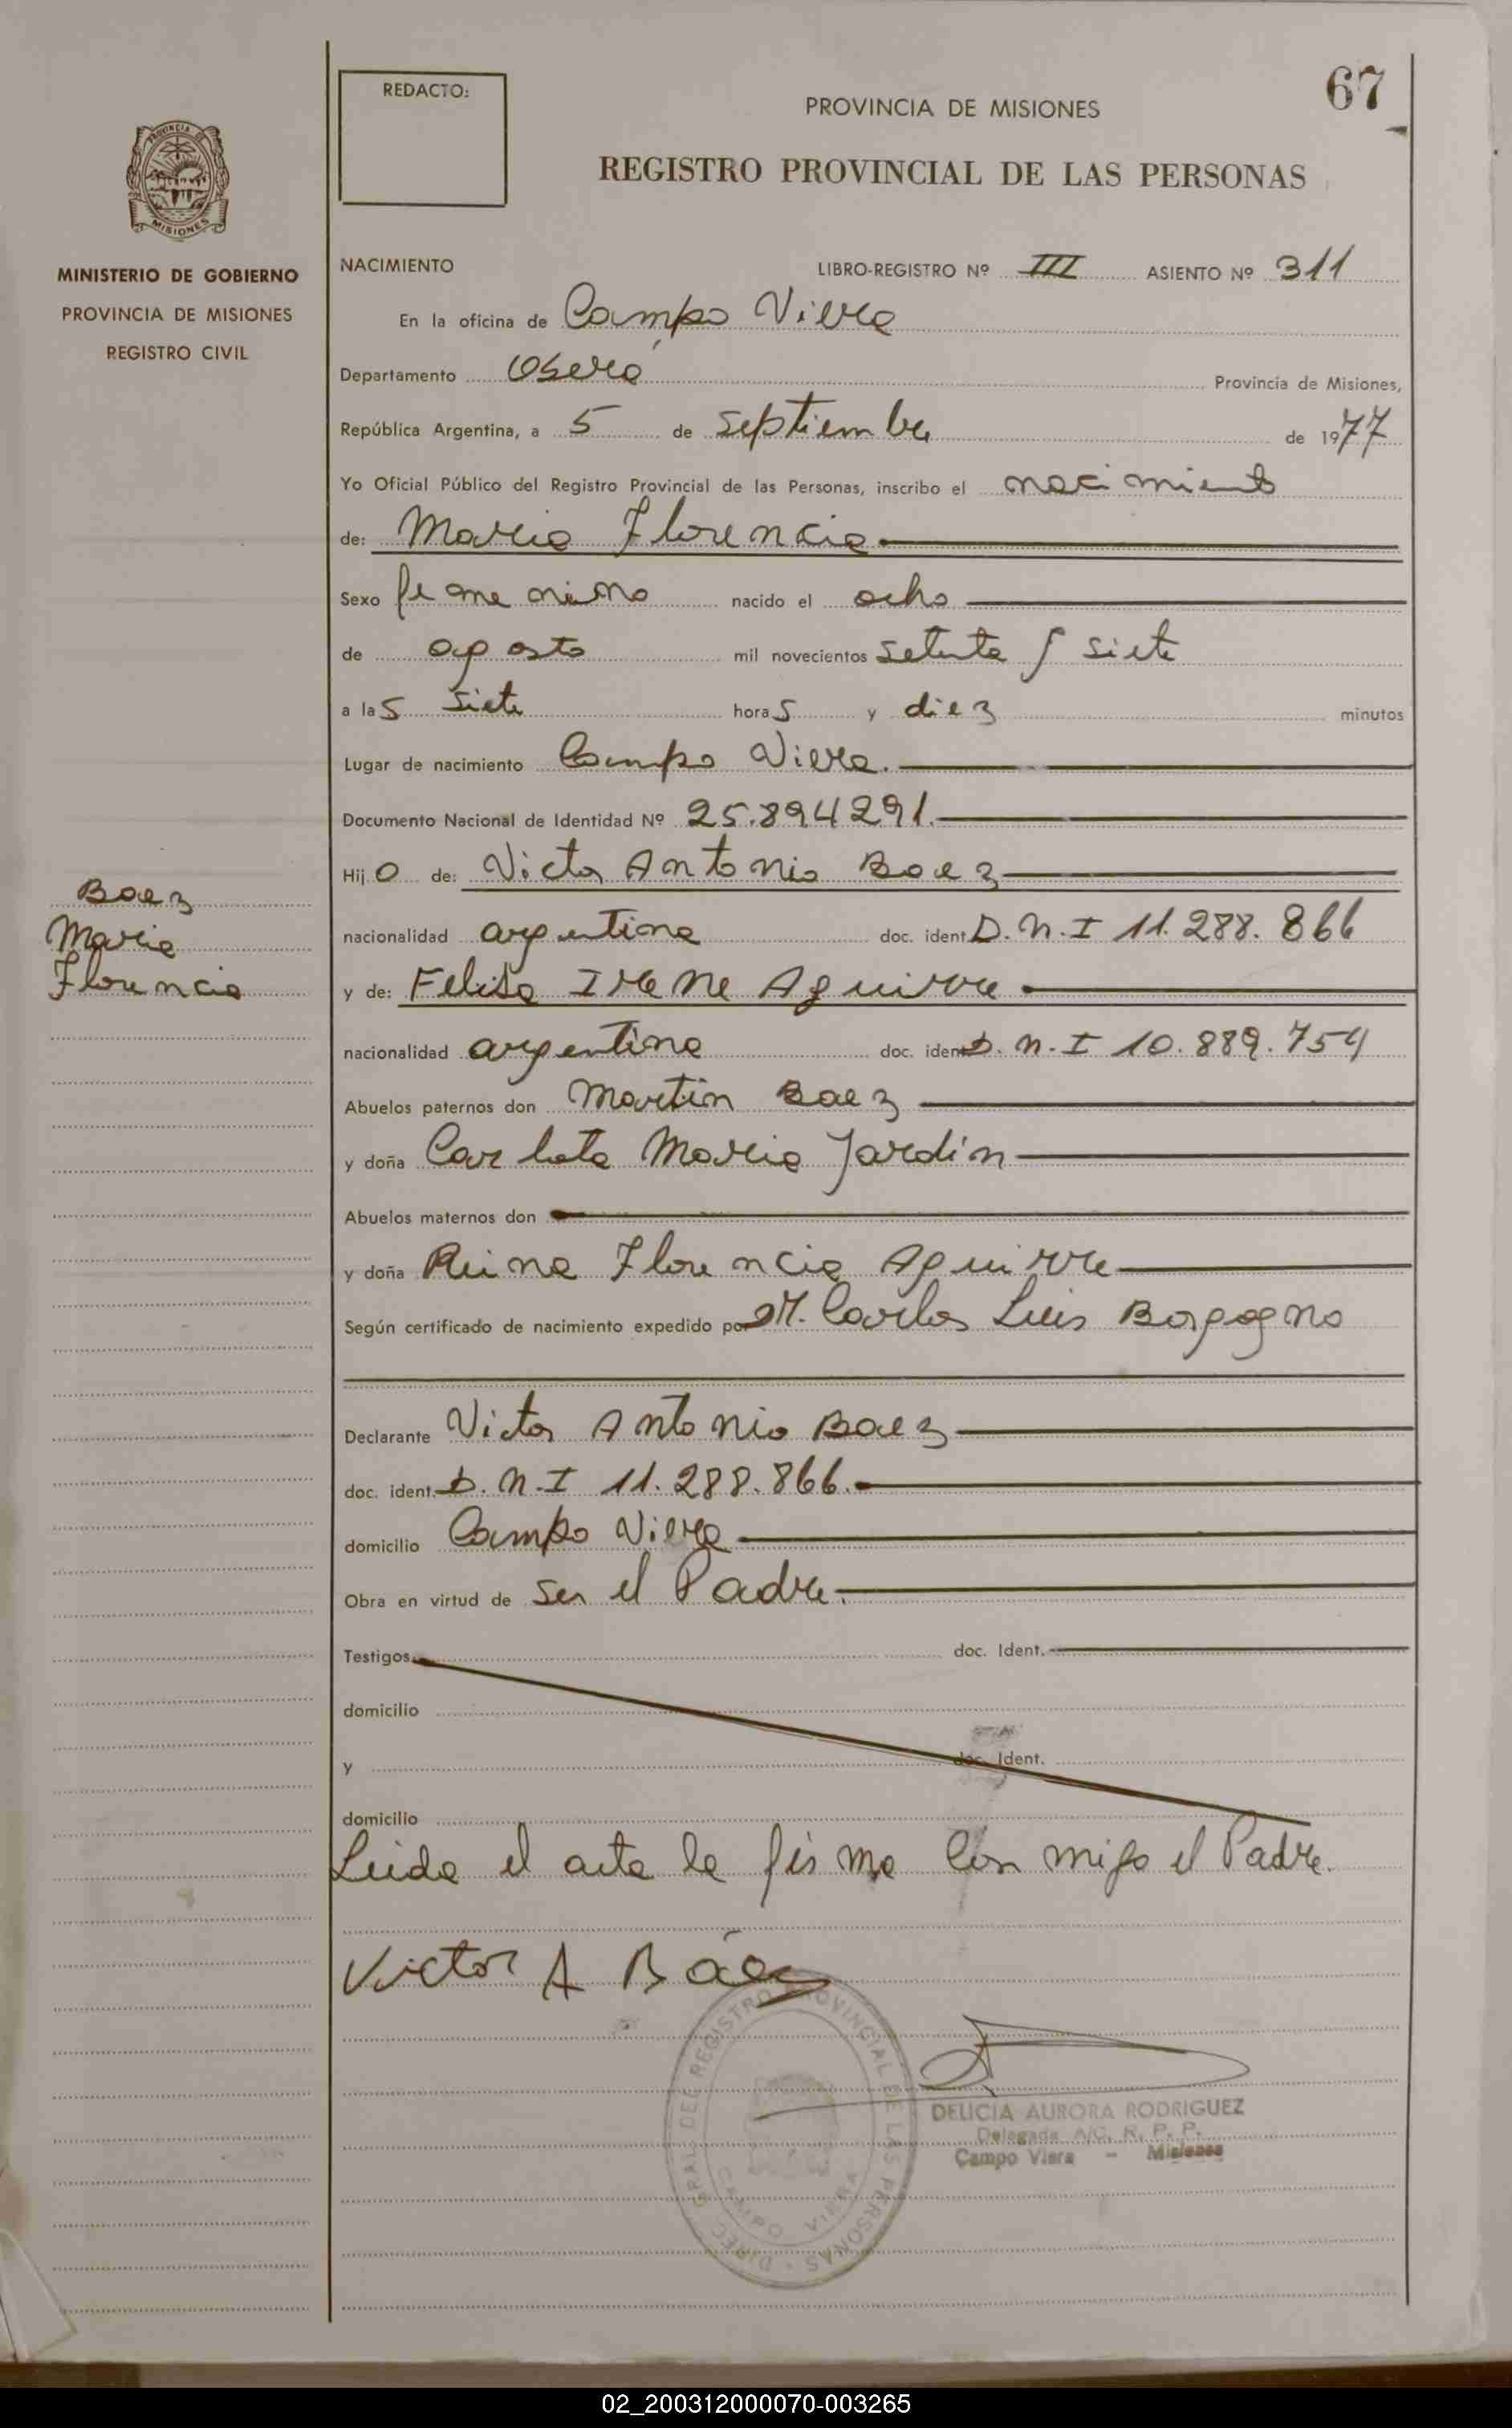 67
REDACTO:
PROVINCIA DE MISIONES
REGISTRO PROVINCIAL DE LAS PERSONAS
PROVINCIA DE MISIONES
MINISTERIO DE GOBIERNO
PROVINCIA DE MISIONES
REGISTRO CIVIL
NACIMIENTO
LIBRO-REGISTRO Nº III ASIENTO Nº 311
En la oficina de Campo Viera
Departamento Oberá Provincia de Misiones,
República Argentina, a 5 de septiembre de 1977
Yo Oficial Público del Registro Provincial de las Personas, inscribo el nacimiento
de: Maria Florencia
Sexo femenino nacido el ocho
de agosto mil novecientos setenta y siete
a las siete horas y diez minutos
Lugar de nacimiento Campo Viera.
Documento Nacional de Identidad Nº 25.894291.
Hijo de: Victor Antonio Baez
Baez
Maria
Florencia
nacionalidad argentina doc. ident. D.N.I 11.288.866
y de: Felisa Irene Aguirre
nacionalidad argentina doc. ident. D.N.I 10.889.754
Abuelos paternos don Martin Baez
y doña Carlota Maria Jardin
Abuelos maternos don
y doña Reina Florencia Aguirre
Según certificado de nacimiento expedido por Dr. Carlos Luis Borgogno
Declarante Victor Antonio Baez
doc. ident. D.N.I 11.288.866.
domicilio Campo Viera
Obra en virtud de ser el Padre.
Testigos doc. Ident.
domicilio
y doc. Ident.
domicilio
Leida el acta la firma con migo el Padre.
Victor A Báez
DIREC. GRAL. DEL REGISTRO PROVINCIAL DE LAS PERSONAS
CAMPO VIERA
DELICIA AURORA RODRIGUEZ
Delegada A/C. R. P. P.
Campo Viera - Misiones
02_200312000070-003265